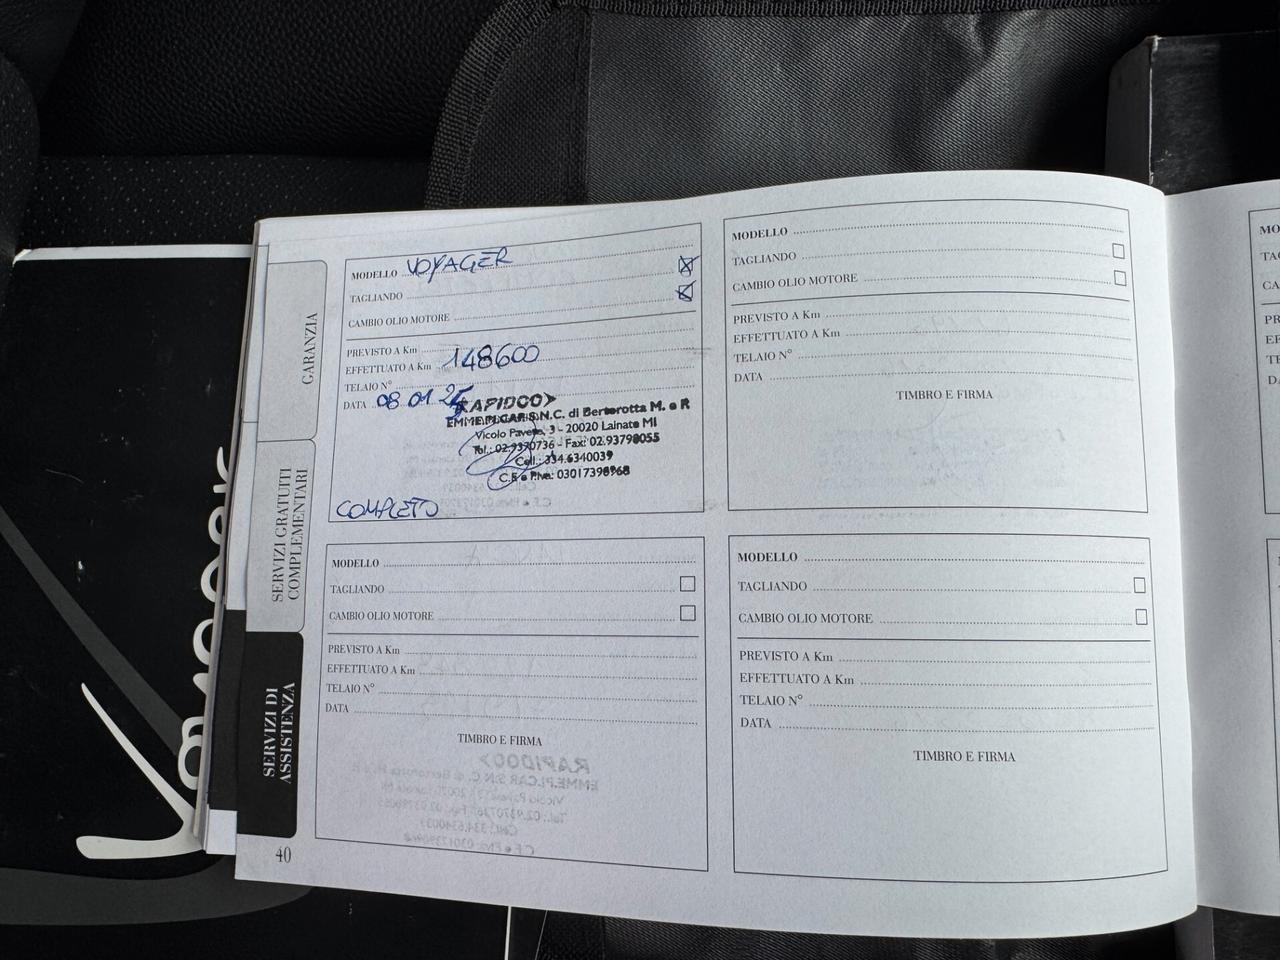 GARANZIA
SERVIZI GRATUITI
COMPLEMENTARI
SERVIZI DI
ASSISTENZA
40
MODELLO VOYAGER
TAGLIANDO
CAMBIO OLIO MOTORE
PREVISTO A Km
EFFETTUATO A Km 148600
TELAIO N°
DATA 08 01 25
RAPIDOO
EMME.PI.CAR S.N.C. di Bertorotta M. e R
Vicolo Pavese, 3 - 20020 Lainate MI
Tel.: 02.9370736 - Fax: 02.93798055
Cell.: 334.6340039
C.F. e P.Iva: 03017398968
COMPLETO
MODELLO
TAGLIANDO
CAMBIO OLIO MOTORE
PREVISTO A Km
EFFETTUATO A Km
TELAIO N°
DATA
TIMBRO E FIRMA
MODELLO
TAGLIANDO
CAMBIO OLIO MOTORE
PREVISTO A Km
EFFETTUATO A Km
TELAIO N°
DATA
TIMBRO E FIRMA
MODELLO
TAGLIANDO
CAMBIO OLIO MOTORE
PREVISTO A Km
EFFETTUATO A Km
TELAIO N°
DATA
TIMBRO E FIRMA